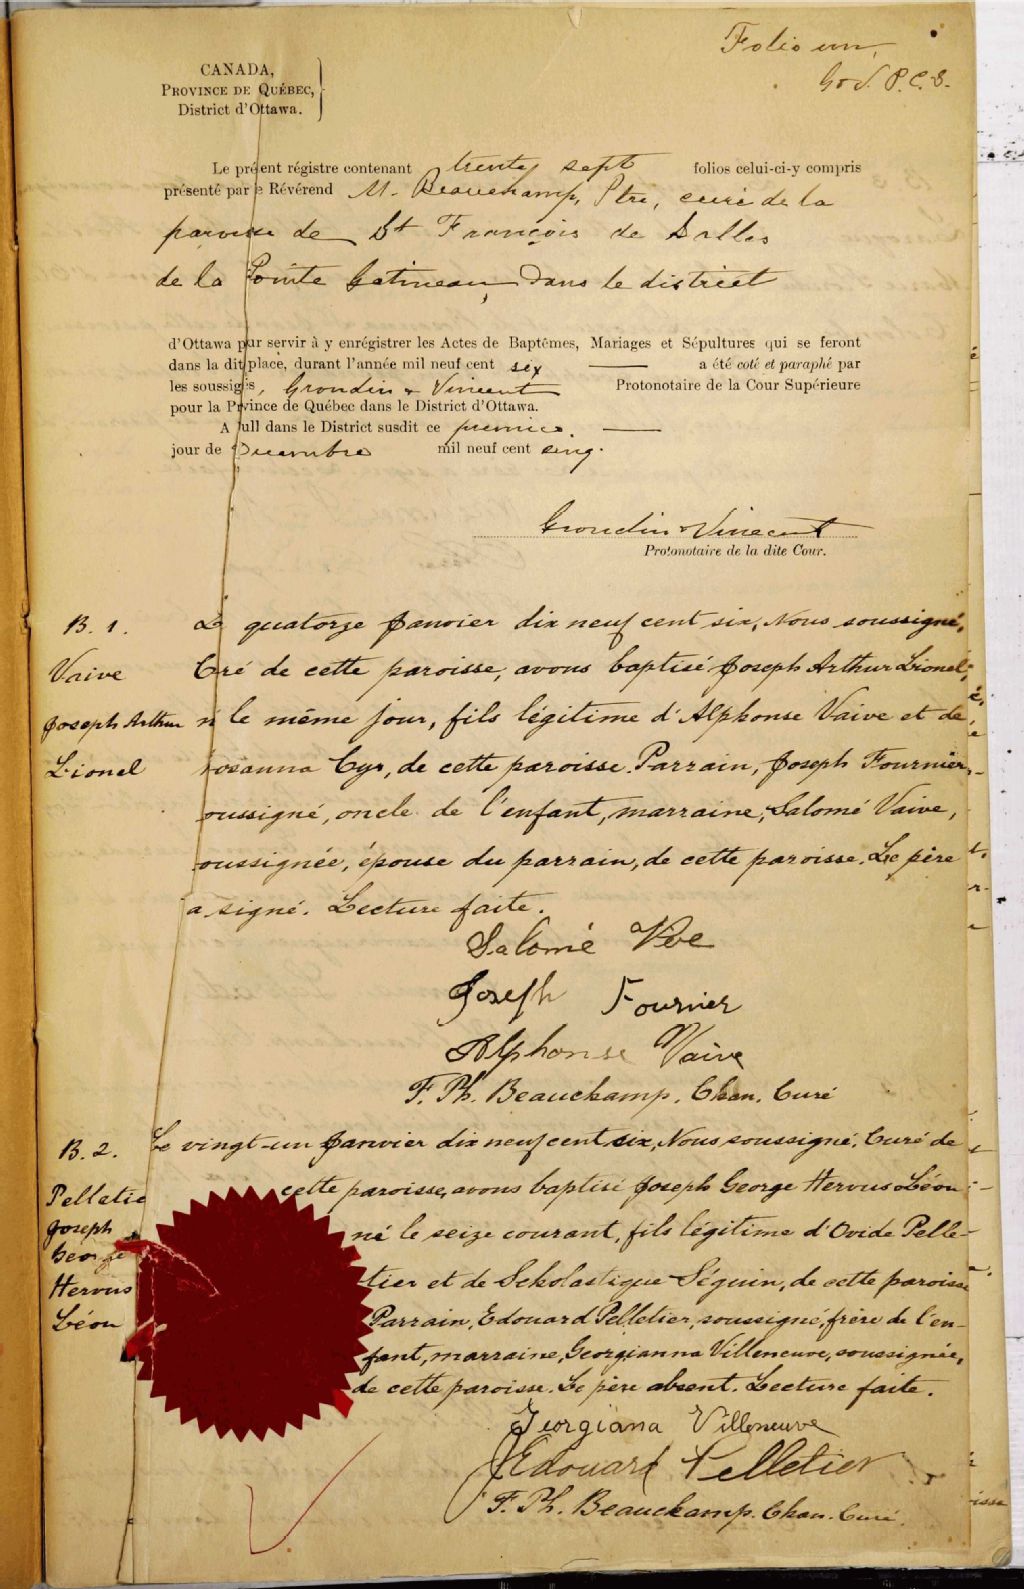 Folio un,
G & V. P.C.S.
CANADA,
PROVINCE DE QUÉBEC,
District d'Ottawa.
Le présent régistre contenant trente sept folios celui-ci-y compris
présenté par le Révérend M. Beauchamp, Ptre, curé de la
paroisse de St François de Salles
de la Pointe Gatineau, dans le district
d'Ottawa pur servir à y enrégistrer les Actes de Baptêmes, Mariages et Sépultures qui se feront
dans la dit place, durant l'année mil neuf cent six a été coté et paraphé par
les soussigés, Grondin & Vincent Protonotaire de la Cour Supérieure
pour la Prvince de Québec dans le District d'Ottawa.
A ull dans le District susdit ce premier
jour de Décembre mil neuf cent cinq.
Grondin & Vincent
Protonotaire de la dite Cour.
B. 1. Le quatorze Janvier dix neuf cent six, Nous soussigné,
Vaive Curé de cette paroisse, avons baptisé Joseph Arthur Lionel,
Joseph Arthur né le même jour, fils légitime d'Alphonse Vaive et de
Lionel rosanna Cyr, de cette paroisse. Parrain, Joseph Fournier,
oussigné, oncle de l'enfant, marraine, Salomé Vaive,
oussignée, épouse du parrain, de cette paroisse. Le père
a signé. Lecture faite.
Salomé Vve
Joseph Fournier
Alphonse Vaive
F. Ph. Beauchamp. Chan. Curé
B. 2. Le vingt-un Janvier dix neuf cent six, Nous soussigné, Curé de
Pelletie cette paroisse, avons baptisé Joseph George Hervus Léon
Joseph né le seize courant, fils légitime d'Ovide Pelle-
George
Hervus tier et de Scholastique Séguin, de cette paroisse
Léon Parrain, Edouard Pelletier, soussigné, frère de l'en-
fant, marraine, Georgianna Villeneuve, soussignée,
de cette paroisse. Le père absent. Lecture faite.
Georgiana Villeneuve
Edouard Pelletier
F. Ph. Beauchamp. Chan. Curé.